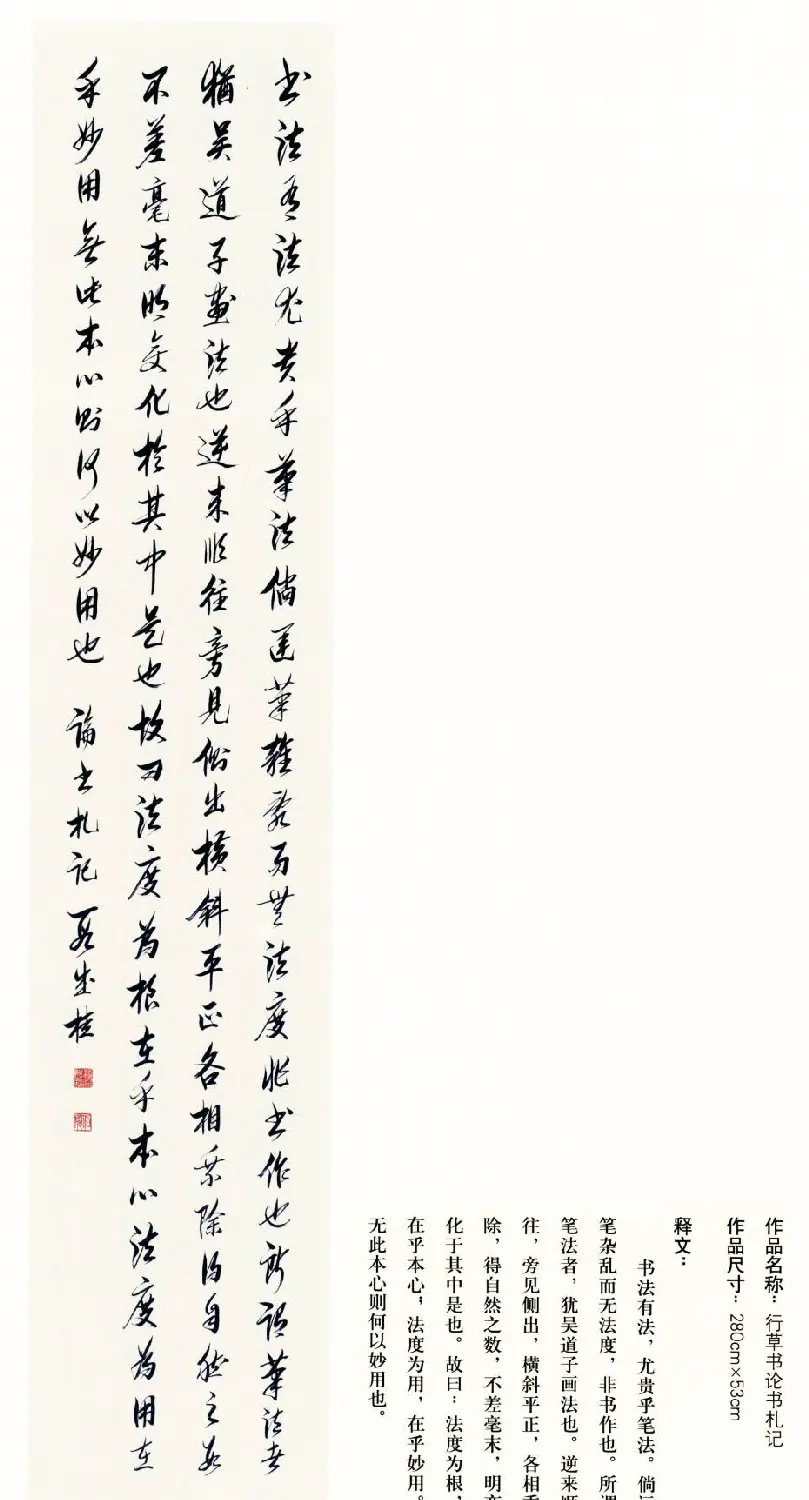 书法有法尤贵乎筆法倘運筆雜亂而無法度非书作也所謂筆法者
猶吴道子畫法也逆来順往旁見側出横斜平正各相乘除得自然之数
不差毫末明変化於其中是也故曰法度為根在乎本心法度為用在
乎妙用無此本心則何以妙用也 論书札记 段成桂
作品名称：行草书论书札记
作品尺寸：280cm×53cm
释文：
书法有法，尤贵乎笔法。倘
笔杂乱而无法度，非书作也。所谓
笔法者，犹吴道子画法也。逆来顺
往，旁见侧出，横斜平正，各相乘
除，得自然之数，不差毫末，明变
化于其中是也。故曰：法度为根，
在乎本心；法度为用，在乎妙用。
无此本心则何以妙用也。